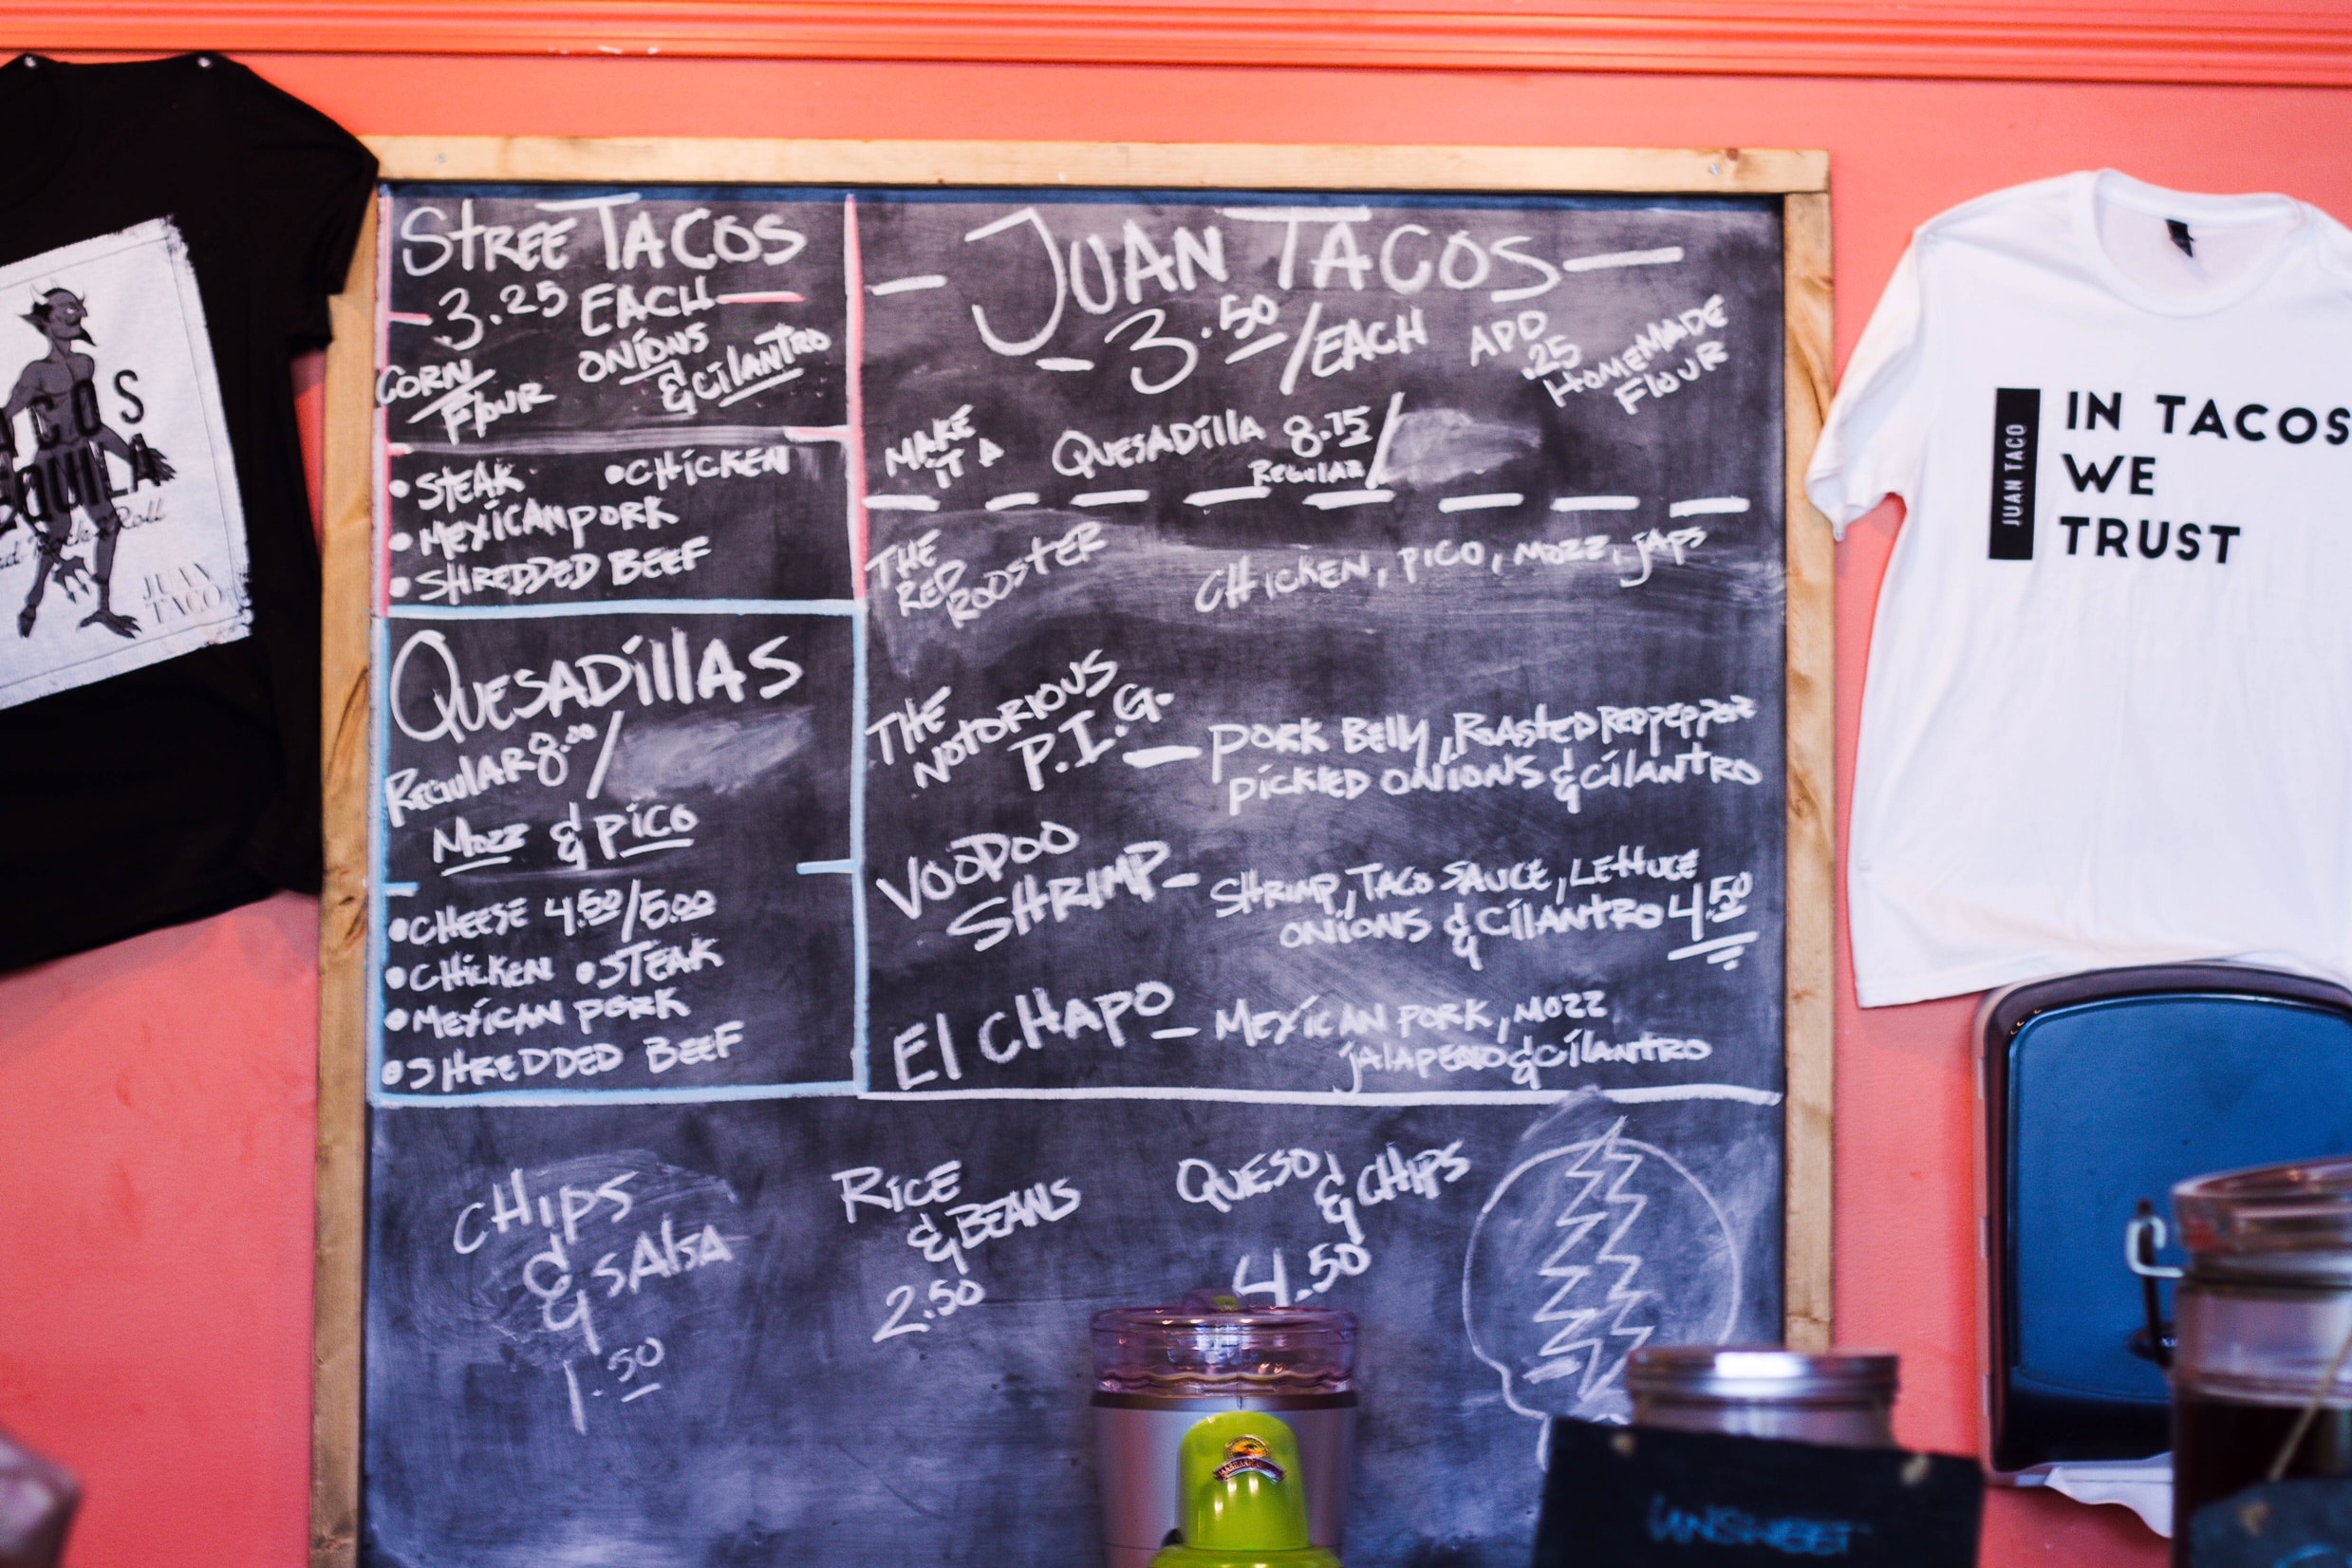 STREET TACOS
3.25 EACH
CORN
FLOUR
ONIONS
& CILANTRO
• STEAK • CHICKEN
• MEXICAN PORK
• SHREDDED BEEF
QUESADILLAS
REGULAR 8.00/
MOZZ & PICO
• CHEESE 4.50/5.00
• CHICKEN • STEAK
• MEXICAN PORK
• SHREDDED BEEF
JUAN TACOS
3.50/EACH
ADD
.25
HOMEMADE
FLOUR
MAKE
IT A
QUESADILLA 8.75/
REGULAR
THE
RED
ROOSTER
CHICKEN, PICO, MOZZ, JAPS
THE
NOTORIOUS
P.I.G. –
PORK BELLY, ROASTED RED PEPPER
PICKLED ONIONS & CILANTRO
VOODOO
SHRIMP –
SHRIMP, TACO SAUCE, LETTUCE
ONIONS & CILANTRO 4.50
EL CHAPO –
MEXICAN PORK, MOZZ
JALAPENO & CILANTRO
CHIPS
& SALSA
1.50
RICE
& BEANS
2.50
QUESO
& CHIPS
4.50
JUAN TACO
IN TACOS
WE
TRUST
JUAN
TACO
UNSWEET